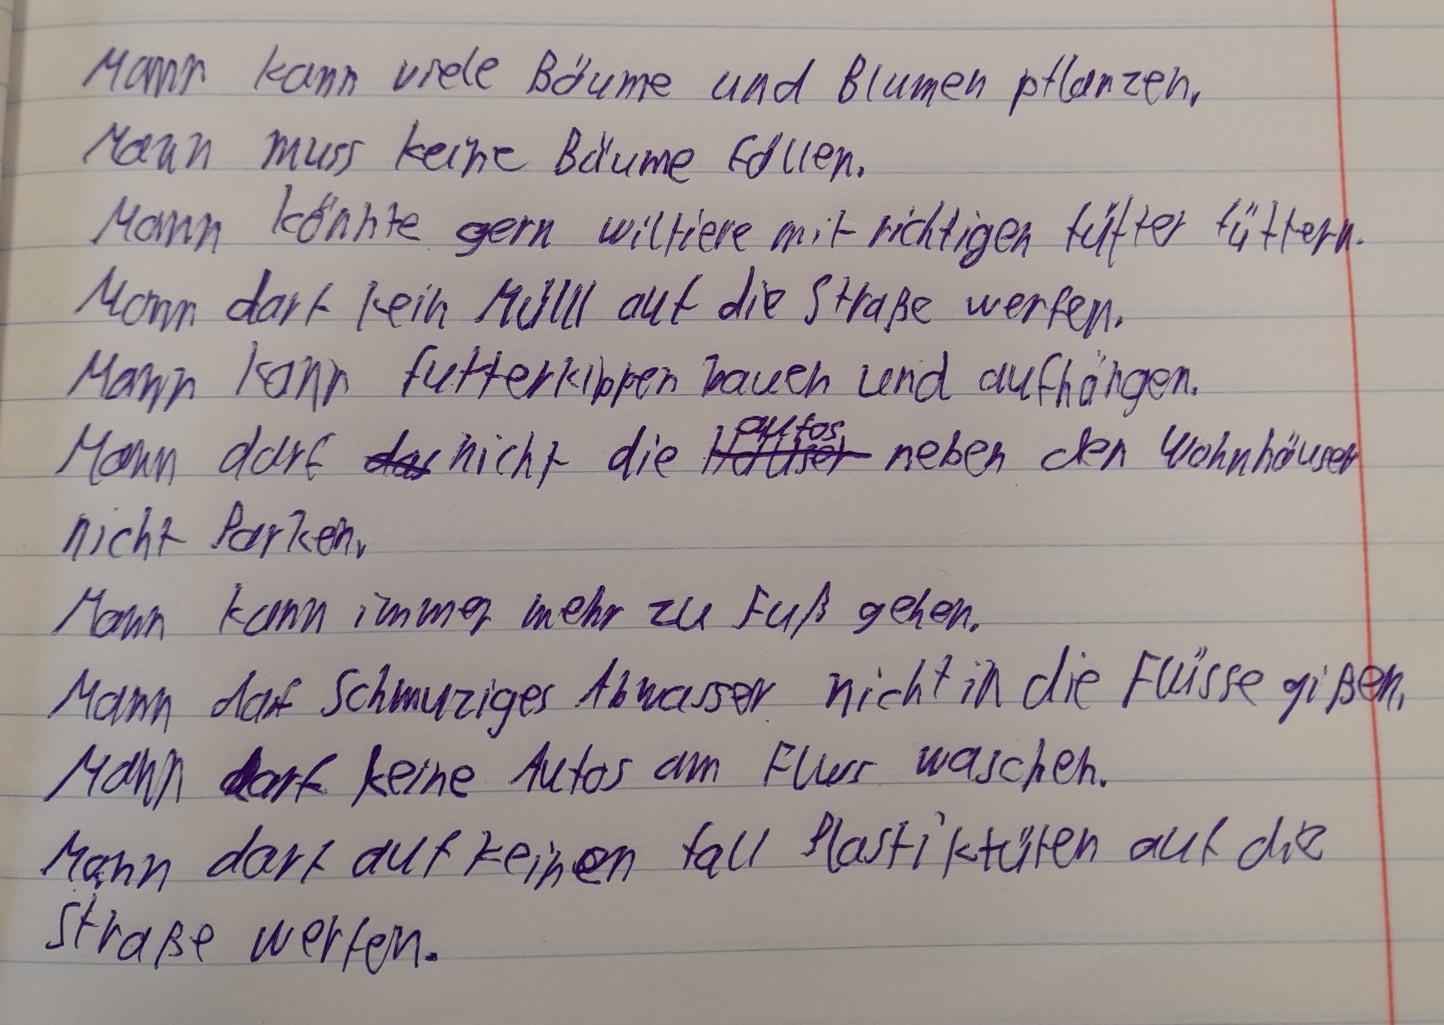 Mann kann viele Bäume und Blumen pflanzen.
Mann muss keine Bäume Fällen.
Mann könnte gern wiltiere mit richtigen fütter füttern.
Mann darf kein Mülll auf die Straße werfen.
Mann kann futterkippen bauen und aufhängen.
Mann darf das nicht die Häuser autos neben den Wohnhäuser
nicht Parken.
Mann kann immer mehr zu Fuß gehen.
Mann daf Schmuziges Abwasser nicht in die Flüsse gißen.
Mann darf keine Autos am Fluss waschen.
Mann darf auf keinen fall Plastiktüten auf die
Straße werfen.